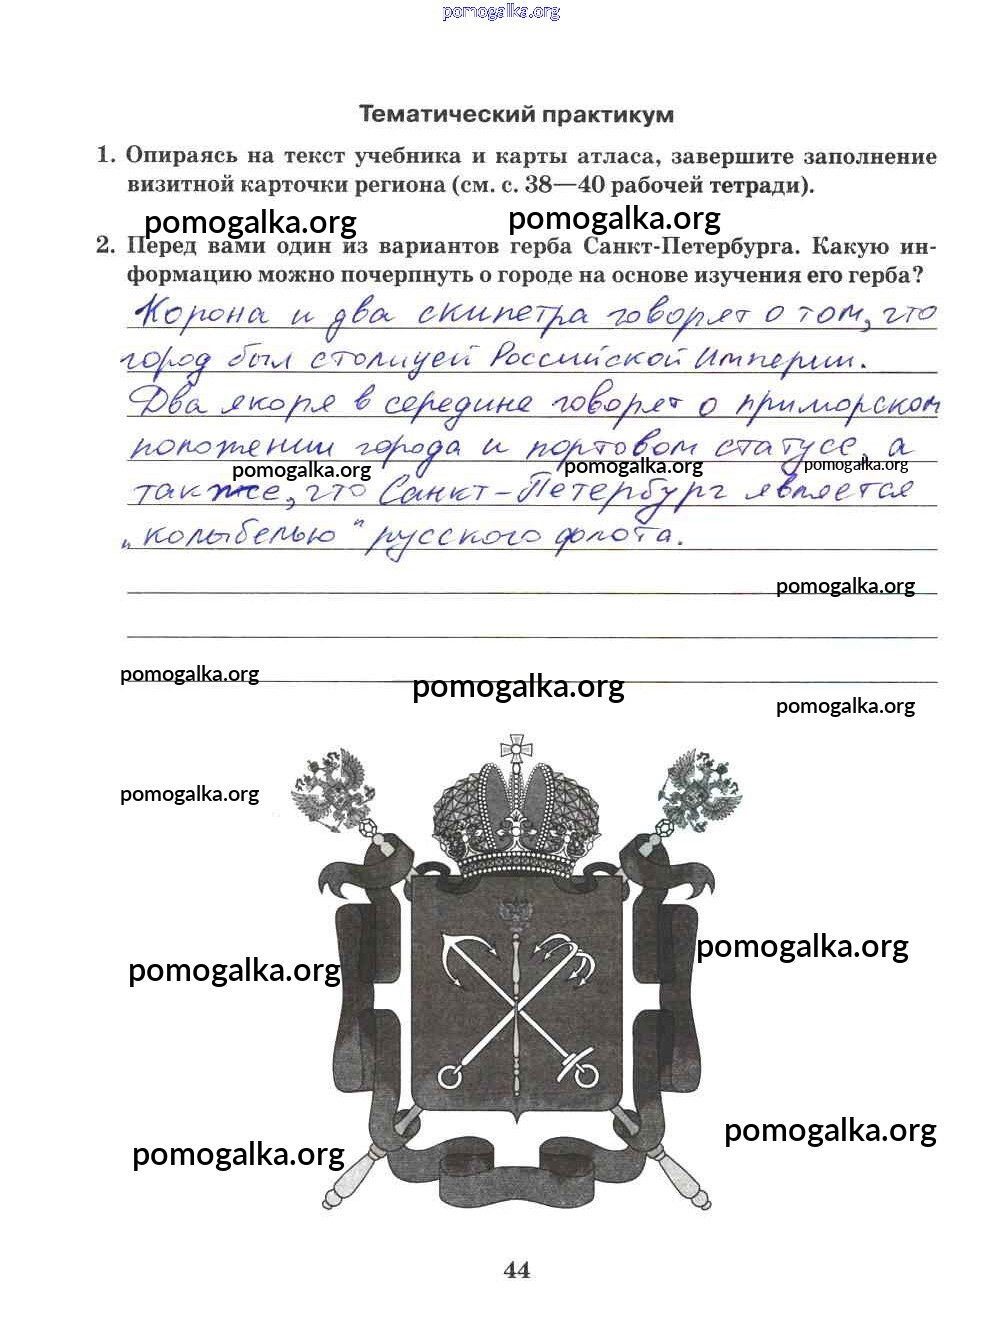 pomogalka.org
Тематический практикум
1. Опираясь на текст учебника и карты атласа, завершите заполнение
визитной карточки региона (см. с. 38—40 рабочей тетради).
pomogalka.org pomogalka.org
2. Перед вами один из вариантов герба Санкт-Петербурга. Какую ин-
формацию можно почерпнуть о городе на основе изучения его герба?
Корона и два скипетра говорят о том, что
город был столицей Российской Империи.
Два якоря в середине говорят о приморском
положении города и портовом статусе, а
pomogalka.org pomogalka.org pomogalka.org
также, что Санкт-Петербург является
„колыбелью" русского флота.
pomogalka.org
pomogalka.org pomogalka.org
pomogalka.org
pomogalka.org
pomogalka.org
pomogalka.org
pomogalka.org
pomogalka.org
44